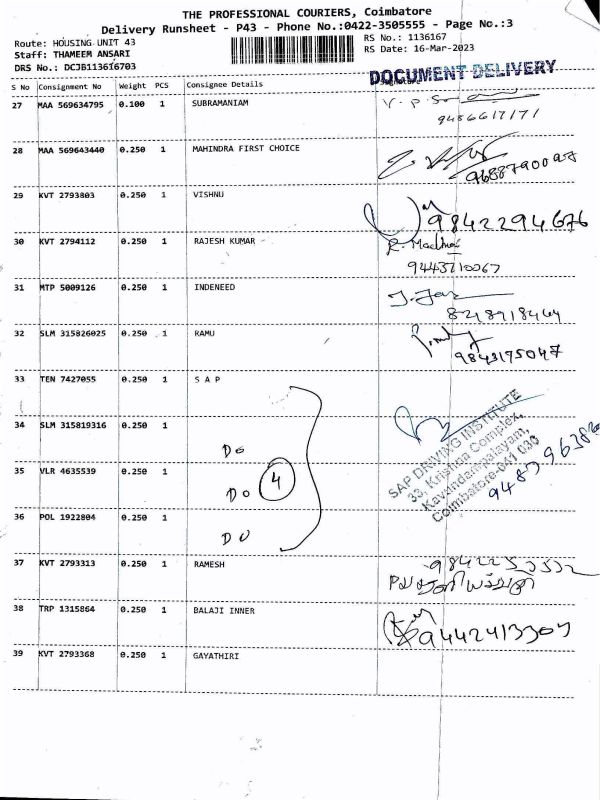 THE PROFESSIONAL COURIERS, Coimbatore
Delivery Runsheet - P43 - Phone No.:0422-3505555 - Page No.:3
Route: HOUSING UNIT 43
Staff: THAMEEM ANSARI
DRS No.: DCJB113616703
RS No.: 1136167
RS Date: 16-Mar-2023
DOCUMENT DELIVERY
S No Consignment No Weight PCS Consignee Details
27 MAA 569634795 0.100 1 SUBRAMANIAM
9486617171
28 MAA 569643440 0.250 1 MAHINDRA FIRST CHOICE
9688790097
29 KVT 2793803 0.250 1 VISHNU
9842294676
30 KVT 2794112 0.250 1 RAJESH KUMAR
9443710067
31 MTP 5009126 0.250 1 INDENEED
8218918464
32 SLM 315826025 0.250 1 RAMU
9843175047
33 TEN 7427055 0.250 1 S A P
34 SLM 315819316 0.250 1
Do
SAP DRIVING INSTITUTE
33, Krishna Complex,
Kavundampalayam,
Coimbatore-641 030
35 VLR 4635539 0.250 1
Do 4
36 POL 1922804 0.250 1
Do
37 KVT 2793313 0.250 1 RAMESH
38 TRP 1315864 0.250 1 BALAJI INNER
9442413309
39 KVT 2793368 0.250 1 GAYATHIRI